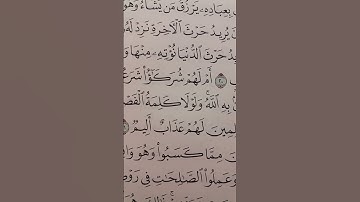 بِعِبَادِهِۦ يَرْزُقُ مَن يَشَآءُ وَهُوَ
يُرِيدُ حَرْثَ ٱلْـَٔاخِرَةِ نَزِدْ لَهُۥ
يدُ حَرْثَ ٱلدُّنْيَا نُؤْتِهِۦ مِنْهَا وَمَا
٢٠ أَمْ لَهُمْ شُرَكَٰٓؤُا۟ شَرَعُ
بِهِ ٱللَّهُ ۚ وَلَوْلَا كَلِمَةُ ٱلْفَصْ
لِمِينَ لَهُمْ عَذَابٌ أَلِيمٌ
نَ مِمَّا كَسَبُوا۟ وَهُوَ وَا
وَعَمِلُوا۟ ٱلصَّٰلِحَٰتِ فِى رَوْ